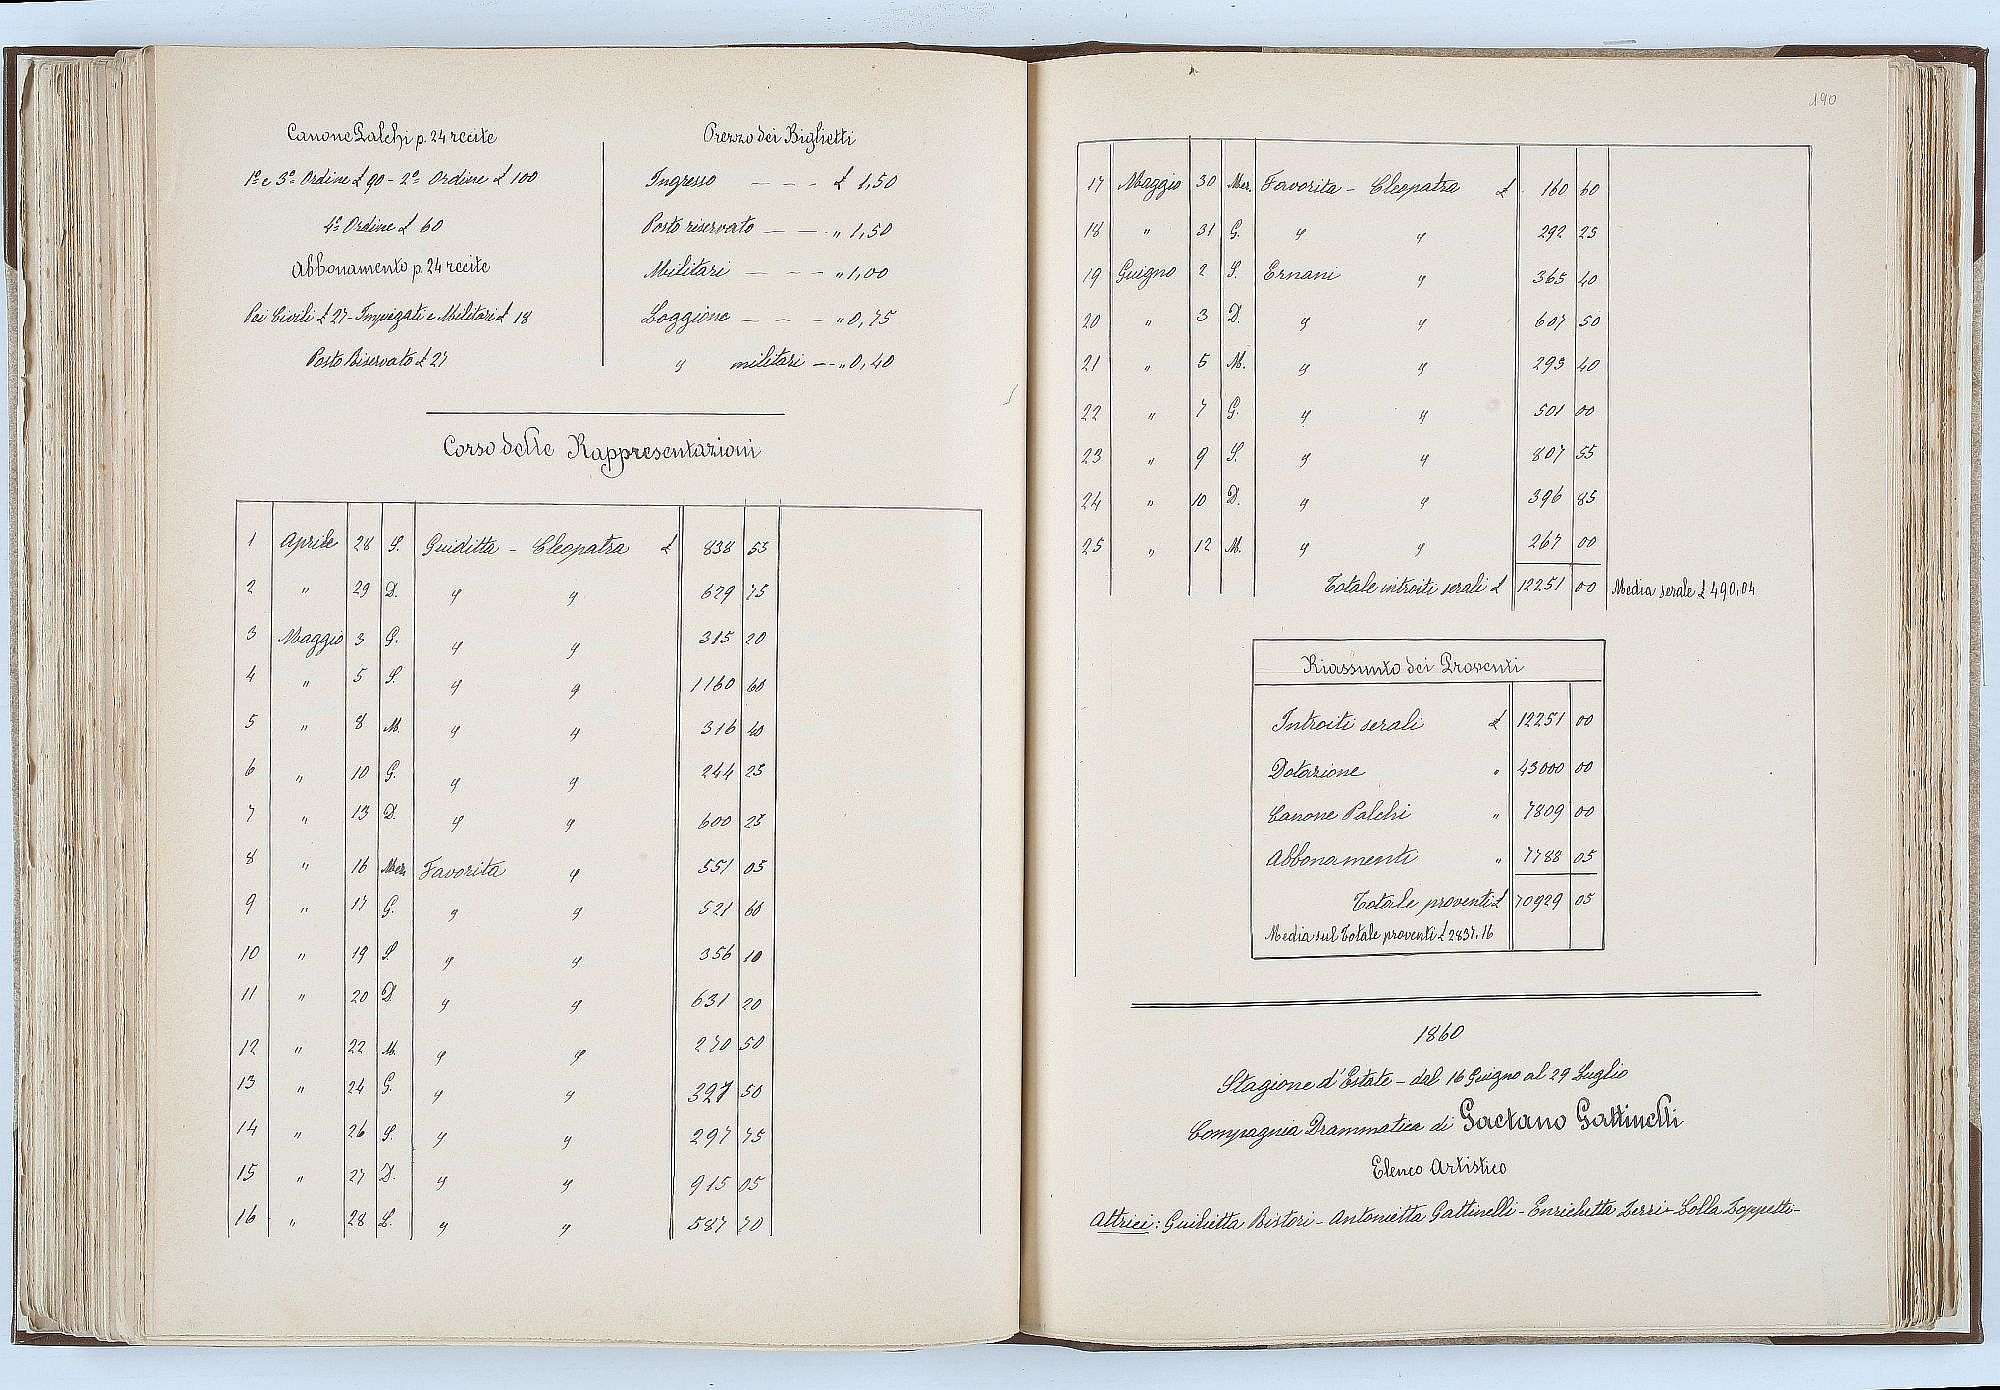 Canone Palchi p. 24 recite
1º e 3º Ordine £ 90 - 2º Ordine £ 100
4º Ordine £ 60
Abbonamento p. 24 recite
Pei Civili £ 27 - Impiegati e Militari £ 18
Posto Riservato £ 27
Prezzo dei Biglietti
Ingresso — — - £ 1,50
Posto riservato — — - „ 1,50
Militari — — - „ 1,00
Loggione — — - „ 0,75
„ militari — - „ 0,40
Corso delle Rappresentazioni
1 Aprile 28 S. Guiditta - Cleopatra £ 838 55
2 „ 29 D. „ „ 629 75
3 Maggio 3 G. „ „ 315 20
4 „ 5 S. „ „ 1160 60
5 „ 8 M. „ „ 316 40
6 „ 10 G. „ „ 244 25
7 „ 13 D. „ „ 600 25
8 „ 16 Mer. Favorita „ 551 05
9 „ 17 G. „ „ 521 60
10 „ 19 S. „ „ 356 10
11 „ 20 D. „ „ 631 20
12 „ 22 M. „ „ 270 50
13 „ 24 G. „ „ 327 50
14 „ 26 S. „ „ 297 75
15 „ 27 D. „ „ 915 05
16 „ 28 L. „ „ 587 70
190
17 Maggio 30 Mer. Favorita - Cleopatra £ 160 60
18 „ 31 G. „ „ 292 25
19 Guigno 2 S. Ernani „ 365 40
20 „ 3 D. „ „ 607 50
21 „ 5 M. „ „ 293 40
22 „ 7 G. „ „ 501 00
23 „ 9 S. „ „ 807 55
24 „ 10 D. „ „ 396 85
25 „ 12 M. „ „ 267 00
Totale introiti serali £ 12251 00 Media serale £ 490,04
Riassunto dei Proventi
Introiti serali £ 12251 00
Dotazione „ 43000 00
Canone Palchi „ 7809 00
Abbonamenti „ 7788 05
Totale proventi £ 70929 05
Media sul Totale proventi £ 2837,16
1860
Stagione d'Estate - dal 16 Guigno al 29 Luglio
Compagnia Drammatica di Gaetano Gattinelli
Elenco Artistico
Attrici: Guilietta Ristori - Antonietta Gattinelli - Enrichetta Zerri - Lolla Zoppetti -